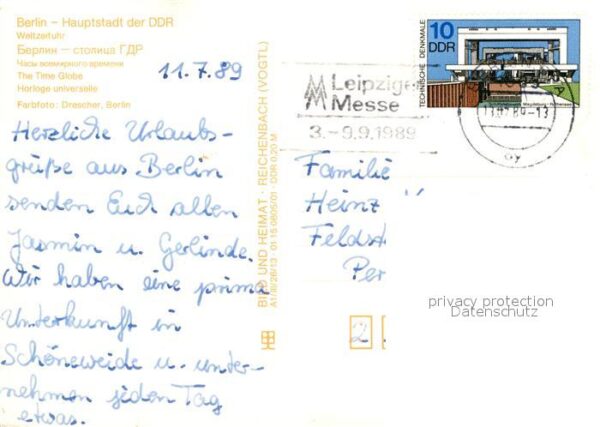 Berlin – Hauptstadt der DDR
Weltzeituhr
Берлин — столица ГДР
Часы всемирного времени
The Time Globe
Horloge universelle
Farbfoto: Drescher, Berlin
11.7.89
Herzliche Urlaubs-
grüße aus Berlin
senden Euch allen
Jasmin u. Gerlinde.
Wir haben eine prima
Unterkunft in
Schöneweide u. unter-
nehmen jeden Tag
etwas.
BILD UND HEIMAT · REICHENBACH (VOGTL)
A1/III/26/13 01 15 0805/01 · DDR 0,20 M
Leipziger
Messe
3.–9.9.1989
10
DDR
TECHNISCHE DENKMALE
Magdeburg-Rothensee
-13
ay
Familie
Heinz
Per
2
privacy protection
Datenschutz